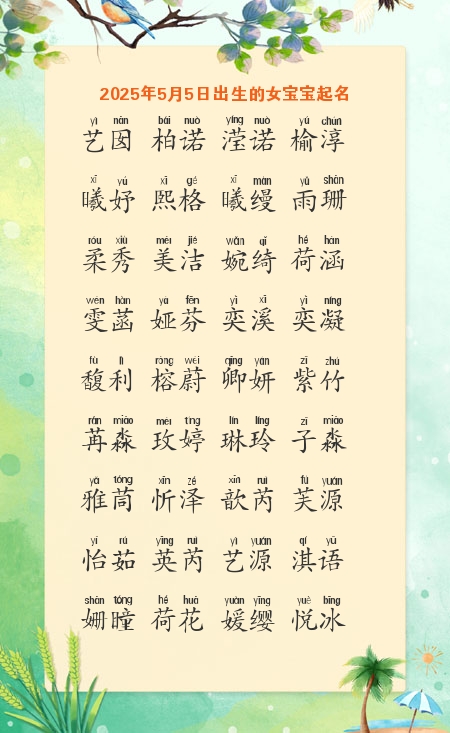 2025年5月5日出生的女宝宝起名
yì nān bǎi nuò yíng nuò yú chún
艺囡 柏诺 滢诺 榆淳
xī yú xī gé xī màn yǔ shān
曦妤 熙格 曦缦 雨珊
róu xiù měi jié wǎn qǐ hé hán
柔秀 美洁 婉绮 荷涵
wén hàn yà fēn yì xī yì níng
雯菡 娅芬 奕溪 奕凝
fù lì róng wèi qīng yán zǐ zhú
馥利 榕蔚 卿妍 紫竹
rǎn miǎo méi tíng lín líng zǐ miǎo
苒淼 玫婷 琳玲 子淼
yǎ tóng xīn zé xīn ruì fú yuán
雅茼 忻泽 歆芮 芙源
yí rú yīng ruì yì yuán qí yǔ
怡茹 英芮 艺源 淇语
shān tóng hé huā yuàn yīng yuè bīng
姗瞳 荷花 媛缨 悦冰